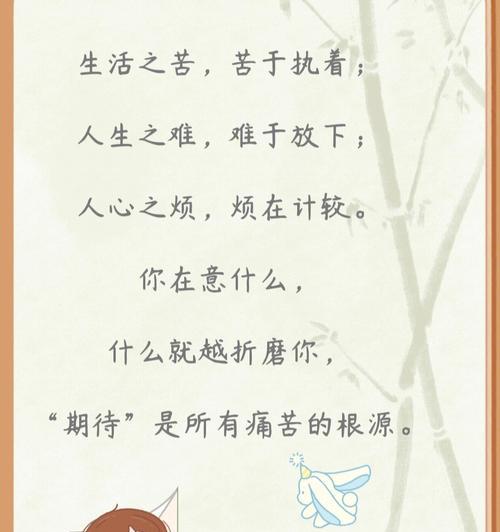 生活之苦，苦于执着；
人生之难，难于放下；
人心之烦，烦在计较。
你在意什么，
什么就越折磨你，
“期待”是所有痛苦的根源。